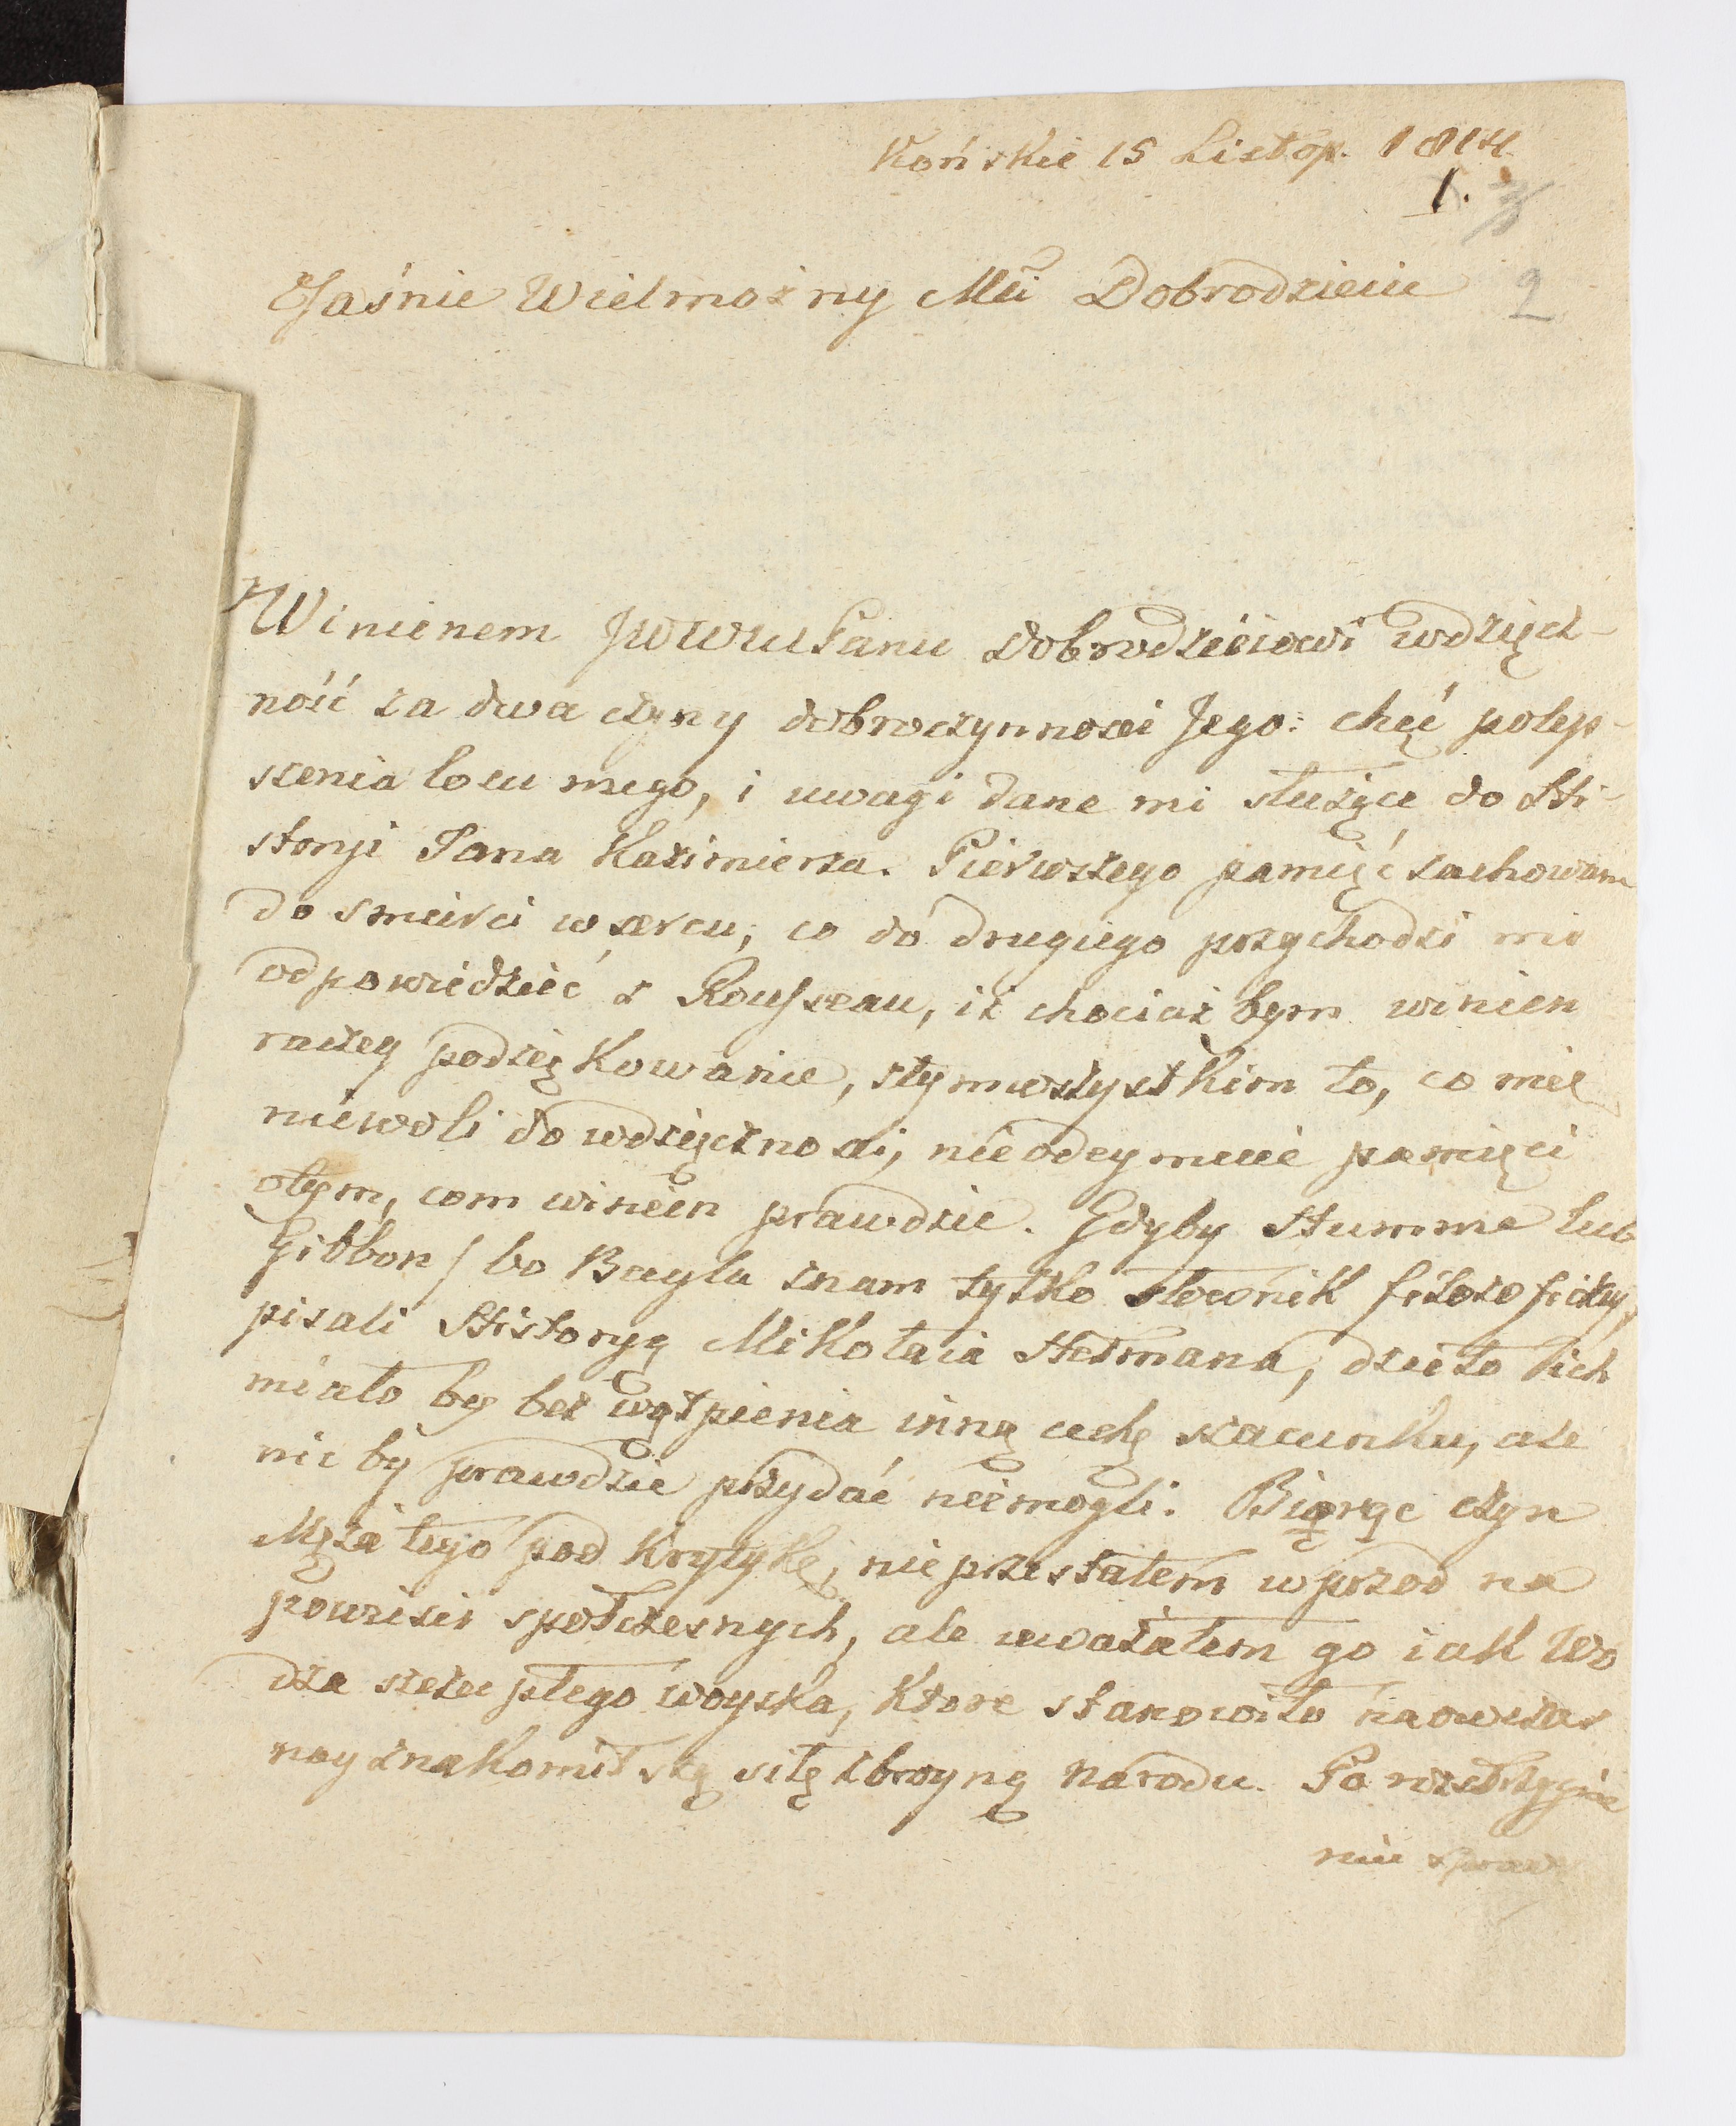 Końskie 15 Listop. 1814
1.
2
Jaśnie Wielmożny Mci Dobrodzieiu
Winienem JWWMPanu Dobrodzieiowi wdzięcz-
ność za dwa czyny dobroczynności Jego: chęć polep-
szenia losu mego, i uwagi dane mi służące do Hi-
storyi Jana Kazimierza. Pierwszego pamięć zachowam
do smierci w sercu; co do drugiego przychodzi mi
odpowiedzieć z Rousseau, iż chociaż bym winien
raczey podziękowanie, ztymwszystkim to, co mię
niewoli do wdzięczności, nieodeymuie pamięci
otym, com winien prawdzie. Gdyby Humme lub
Gibbon / bo Bayla znam tylko słownik filozoficzny/
pisali Historyą Mikołaia Hetmana, dzieło ich
miało by bez wątpienia inną cechę szacunku, ale
nic by prawdzie przydać niemogli. Biorąc czyn
Męża tego pod krytykę, nieprzestałem wprzod na
powieści społczesnych, ale uważałem go iak Wo
dza szczupłego woyska, ktore stanowiło naowczas
nayznakomitszą siłę zbroyną narodu. Po
niu